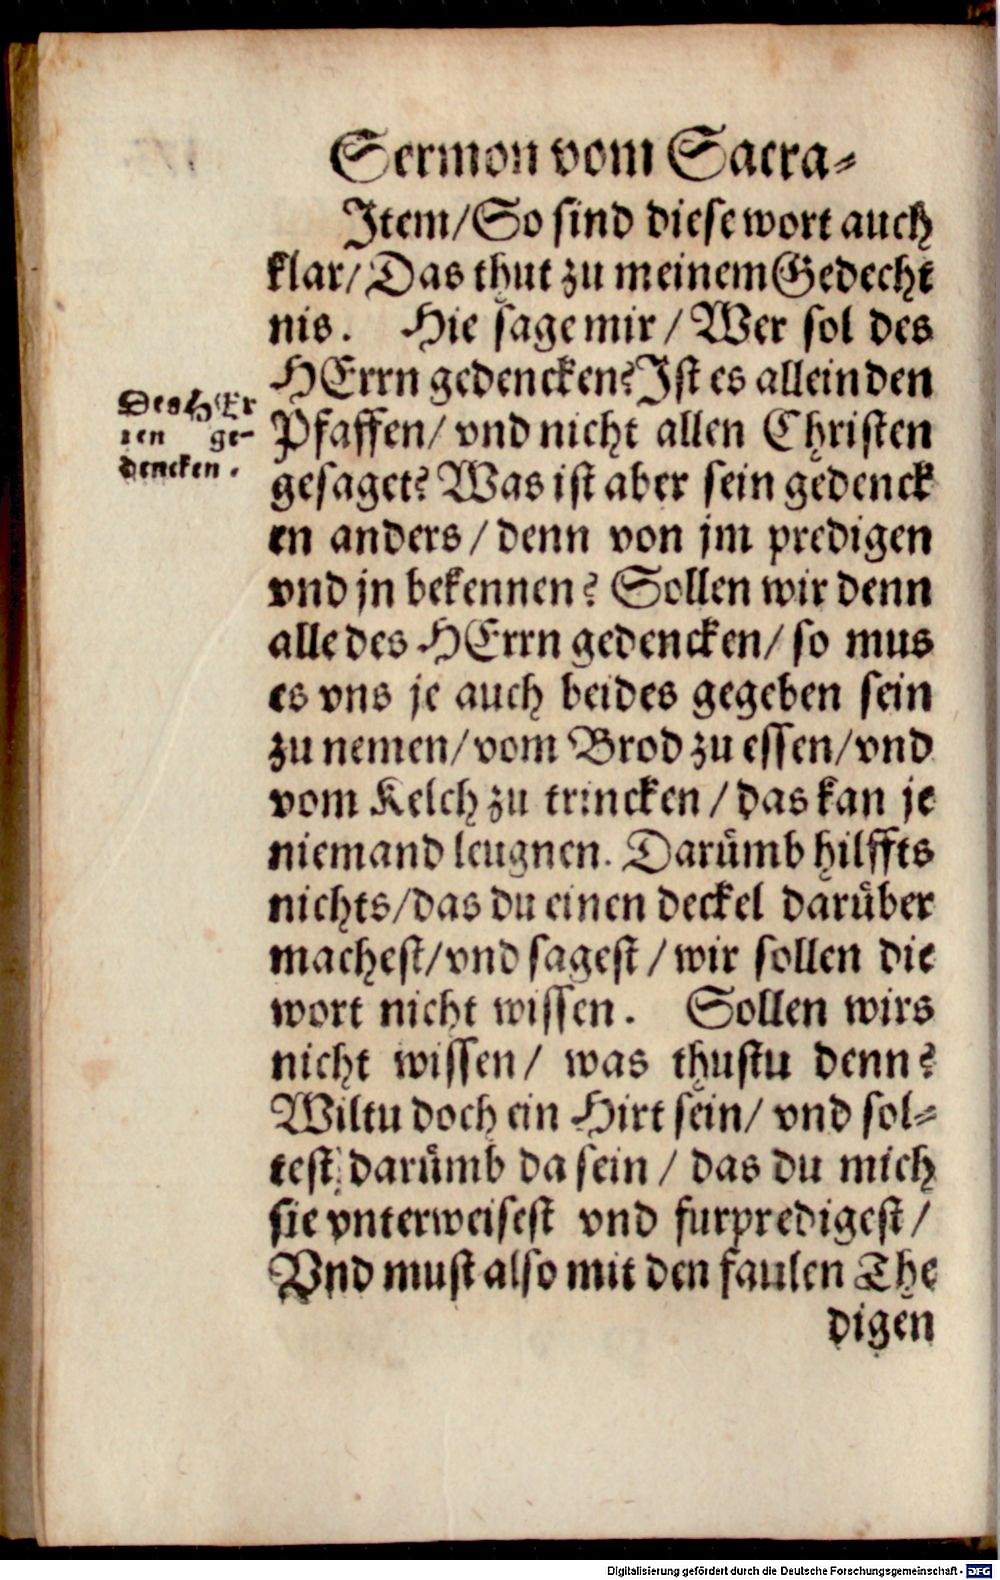 Sermon vom Sacra⸗
Item/So sind diese wort auch
klar/Das thut zu meinem Gedecht
nis. Hie sage mir/Wer sol des
HErrn gedencken? Ist es allein den
Des HEr
ren ge-
dencken.
Pfaffen/vnd nicht allen Christen
gesaget? Was ist aber sein gedenck
en anders/denn von jm predigen
vnd jn bekennen? Sollen wir denn
alle des HErrn gedencken/so mus
es vns je auch beides gegeben sein
zu nemen/vom Brod zu essen/vnd
vom Kelch zu trincken/das kan je
niemand leugnen. Darümb hilffts
nichts/das du einen deckel darüber
machest/vnd sagest/wir sollen die
wort nicht wissen. Sollen wirs
nicht wissen/was thustu denn?
Wiltu doch ein Hirt sein/vnd sol⸗
test darümb da sein/das du mich
sie vnterweisest vnd furpredigest/
Vnd must also mit den faulen The
digen
Digitalisierung gefördert durch die Deutsche Forschungsgemeinschaft - DFG